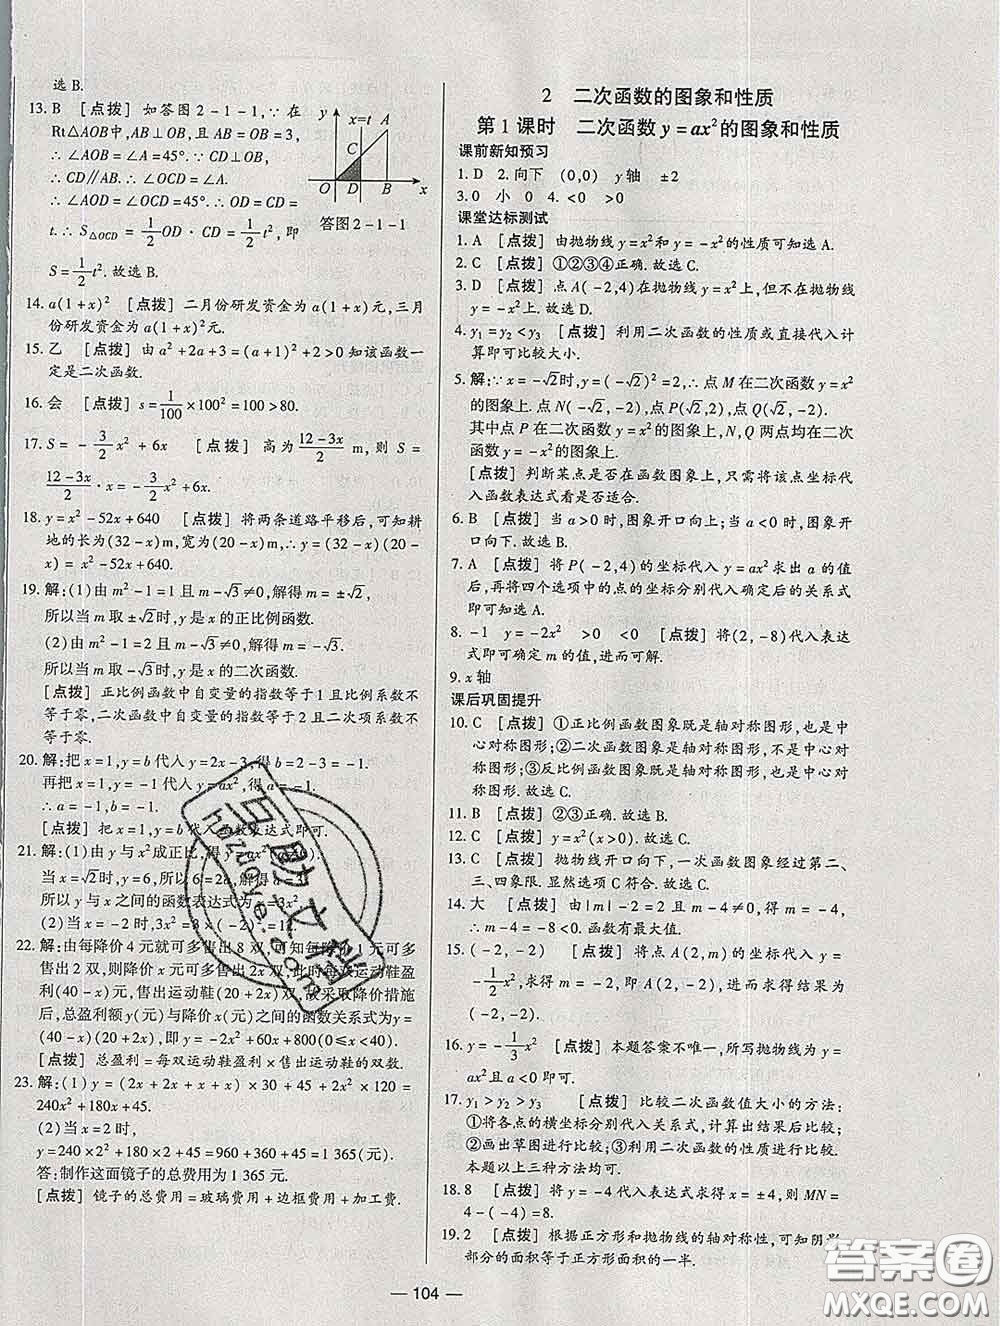 选 B.
13. B [点拨] 如答图 2-1-1,∵ 在
Rt△AOB中,AB⊥OB,且 AB=OB=3,
∴∠AOB=∠A=45°.∵CD⊥OB,
∴CD∥AB.∴∠OCD=∠A.
∴∠AOB=∠OCD=45°.∴OD=CD=
t.∴S△OCD=1/2 OD·CD=1/2 t²,即
S=1/2 t².故选 B.
y
x=t
A
C
O D B x
答图 2-1-1
14. a(1+x)² [点拨] 二月份研发资金为a(1+x)元,三月
份研发资金为a(1+x)²元.
15. 乙 [点拨] 由a²+2a+3=(a+1)²+2>0知该函数一
定是二次函数.
16. 会 [点拨] s=1/100×100²=100>80.
17. S=-3/2 x²+6x [点拨] 高为(12-3x)/2 m,则 S=
(12-3x)/2·x=-3/2 x²+6x.
18. y=x²-52x+640 [点拨] 将两条道路平移后,可知耕
地的长为(32-x)m,宽为(20-x)m,∴y=(32-x)(20-
x)=x²-52x+640.
19. 解:(1)由m²-1=1且m-√3≠0,解得m=±√2,
所以当m取±√2时,y是x的正比例函数.
(2)由m²-1=2且m-√3≠0,解得m=-√3.
所以当m取-√3时,y是x的二次函数.
[点拨] 正比例函数中自变量的指数等于1且比例系数不
等于零,二次函数中自变量的指数等于2且二次项系数不
等于零.
20. 解:把x=1,y=b代入y=2x-3,得b=2-3=-1.
再把x=1,y=-1代入y=ax²,得a=-1.
∴a=-1,b=-1.
[点拨] 把x=1,y=b代入函数表达式即可.
21. 解:(1)由y与x²成正比,得y=ax²(a≠0).
当x=√2时,y=6,∴6=2a,解得a=3.
所以y与x之间的函数表达式为y=3x².
(2)当x=-2时,y=3×(-2)²=12.
22. 解:由每降价4元就可多售出8双,可知每降价1元可多
售出2双,则降价x元可多售出2x双,此时每双运动鞋盈
利(40-x)元,售出运动鞋(20+2x)双,故采取降价措施
后,总盈利额y(元)与降价x(元)之间的函数关系式为y=
(40-x)(20+2x),即y=-2x²+60x+800(0≤x<40).
[点拨] 总盈利=每双运动鞋盈利×售出运动鞋的双数.
23. 解:(1)y=(2x+2x+x+x)×30+45+2x²×120=
240x²+180x+45.
(2)当x=2时,
y=240×2²+180×2+45=960+360+45=1 365(元).
答:制作这面镜子的总费用为1 365元.
[点拨] 镜子的总费用=玻璃费用+边框费用+加工费.
2 二次函数的图象和性质
第1课时 二次函数y=ax²的图象和性质
课前新知预习
1. D 2. 向下 (0,0) y轴 ±2
3. 0 小 0 4. <0 >0
课堂达标测试
1. A [点拨] 由抛物线y=x²和y=-x²的性质可知选A.
2. C [点拨] ①②③④正确.故选C.
3. D [点拨] 点A(-2,4)在抛物线y=x²上,但不在抛物线
y=-x²上.故选D.
4. y₁=y₂<y₃ [点拨] 利用二次函数的性质或直接代入计
算即可比较大小.
5. 解:∵x=-√2时,y=(-√2)²=2,∴点M在二次函数y=x²
的图象上.点N(-√2,-2),点P(√2,2),点Q(√2,-2).
其中点P在二次函数y=x²的图象上,N,Q两点均在二次
函数y=-x²的图象上.
[点拨] 判断某点是否在函数图象上,只需将该点坐标代
入函数表达式看是否适合.
6. B [点拨] 当a>0时,图象开口向上;当a<0时,图象开
口向下.故选B.
7. A [点拨] 将P(-2,4)的坐标代入y=ax²求出a的值
后,再将四个选项中的点的坐标分别代入确定后的关系式
即可知选A.
8. -1 y=-2x² >0 <0 [点拨] 将(2,-8)代入表达
式即可确定m的值,进而可解.
9. x轴
课后巩固提升
10. C [点拨] ①正比例函数图象既是轴对称图形,也是中
心对称图形;②二次函数图象是轴对称图形,不是中心对
称图形;③反比例函数图象既是轴对称图形,也是中心对
称图形.故选C.
11. B [点拨] ②③正确.故选B.
12. C [点拨] y=x²(x>0).故选C.
13. C [点拨] 抛物线开口向下,一次函数图象经过第二、
三、四象限.显然选项C符合.故选C.
14. 大 [点拨] 由|m|-2=2且m-4≠0,得m=-4.
∴m-4=-8<0.函数有最大值.
15. (-2,-2) [点拨] 将点A(2,m)的坐标代入y=
-1/2 x²求得m=-2.∴A(2,-2),进而求得结果为
(-2,-2).
16. y=-1/3 x² [点拨] 本题答案不唯一,所写抛物线为y=
ax²且a<0即可.
17. y₁>y₂>y₃ [点拨] 比较二次函数值大小的方法:
①将各点的横坐标分别代入关系式,计算出结果后比较;
②画出草图进行比较;③利用二次函数的性质进行比较.
本题以上三种方法均可.
18. 8 [点拨] 将y=-4代入表达式求得x=±4,则MN=
4-(-4)=8.
19. 2 [点拨] 根据正方形和抛物线的对称性,可知阴影
部分的面积等于正方形面积的一半.
— 104 —
答案圈
MXQE.COM